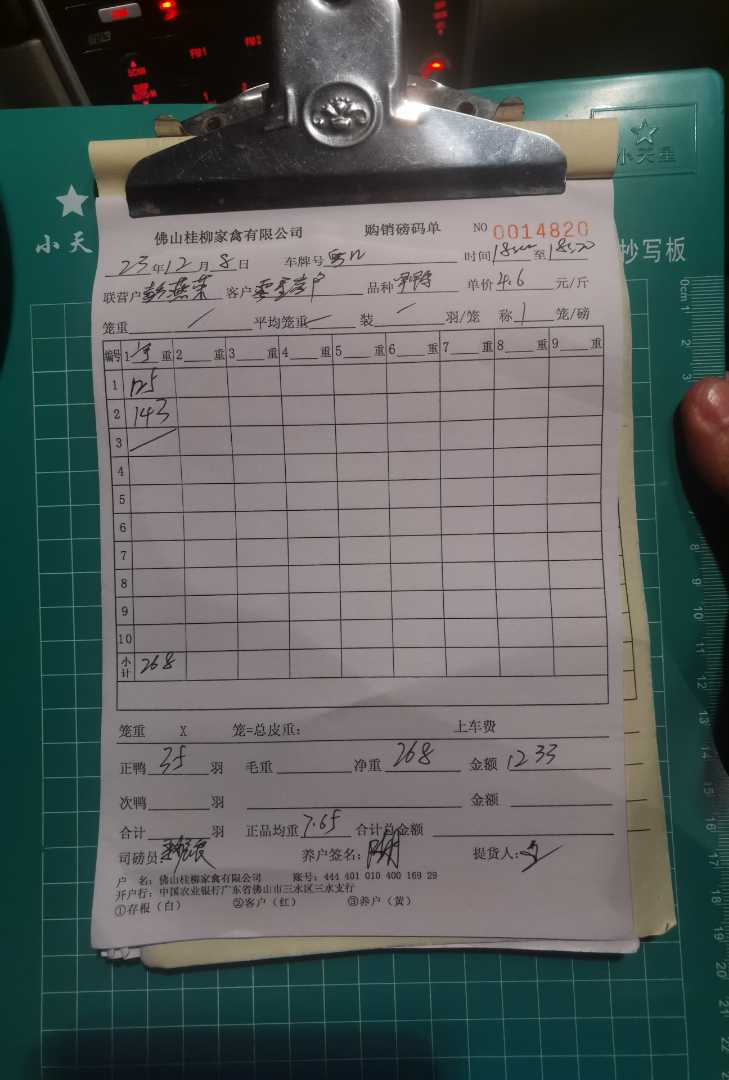 SCAN
FU 1
FU 2
1
2
小天星
小天
抄写板
佛山桂柳家禽有限公司 购销磅码单 NO 0014820
23年12月8日 车牌号 时间 至
联营户 客户 品种 单价4.6元/斤
笼重 / 平均笼重 / 装 / 羽/笼 称 1 笼/磅
编号 1 重 2 重 3 重 4 重 5 重 6 重 7 重 8 重 9 重
1 125
2 143
3 /
4
5
6
7
8
9
10
小计 268
笼重 X 笼=总皮重: 上车费
正鸭 35 羽 毛重 净重 268 金额 1233
次鸭 羽 金额
合计 羽 正品均重 7.65 合计总金额
司磅员: 养户签名: 提货人:
户 名: 佛山桂柳家禽有限公司 账号: 444 401 010 400 169 29
开户行: 中国农业银行广东省佛山市三水区三水支行
①存根（白） ②客户（红） ③养户（黄）
0cm 1
2
3
8
9
10
11
12
13
14
15
16
17
18
19
20
21
22